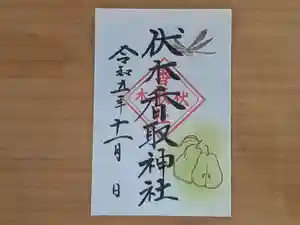 伏木香取神社
令和五年十一月 日